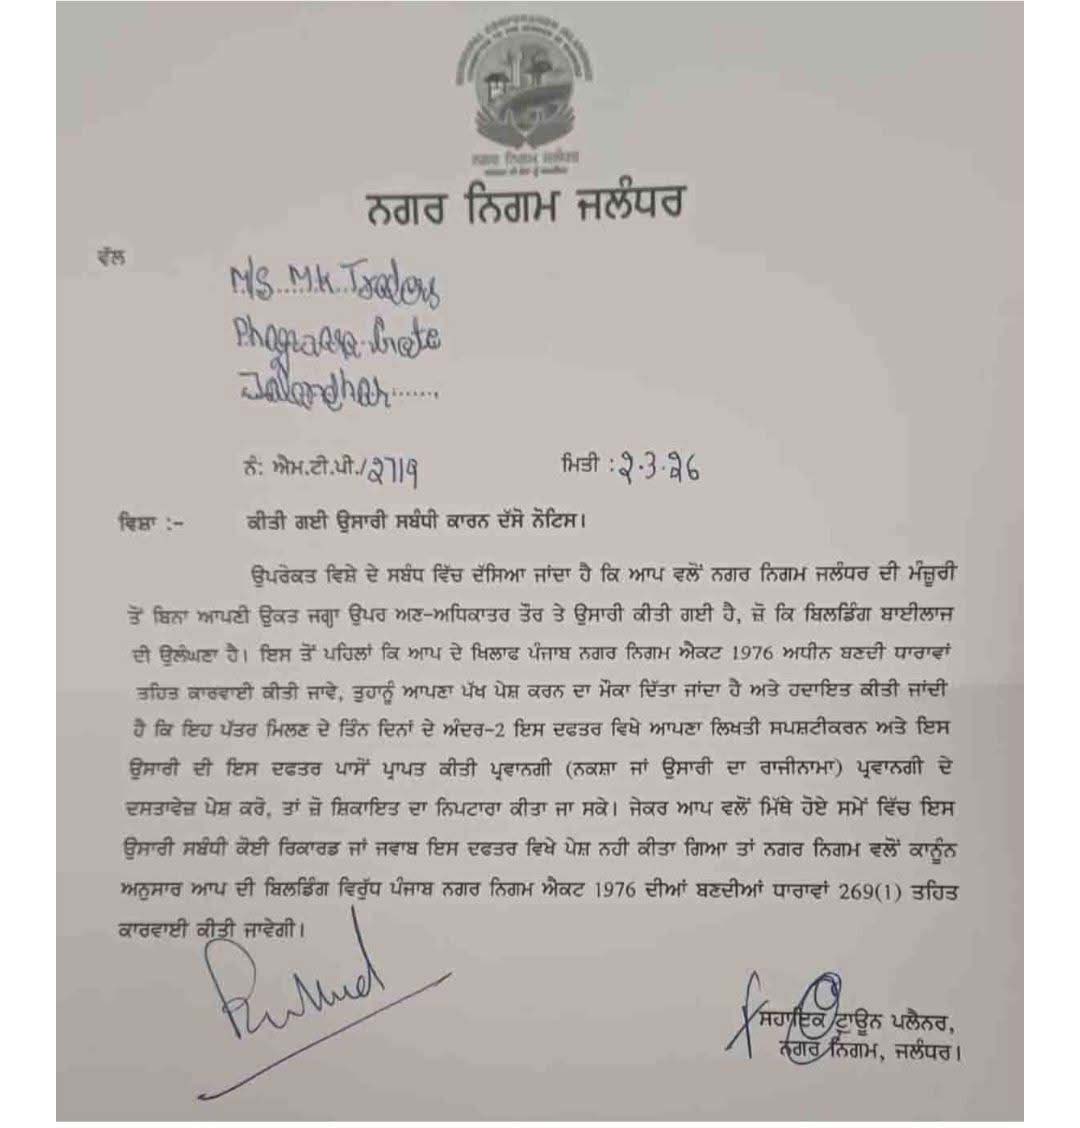 ਨਗਰ ਨਿਗਮ ਜਲੰਧਰ
ਨਗਰ ਨਿਗਮ ਜਲੰਧਰ
ਵੱਲ
M/S. M.K. Traders
Phagwara Gate
Jalandhar......
ਨੰ: ਐਮ.ਟੀ.ਪੀ./2719 ਮਿਤੀ : 2.3.26
ਵਿਸ਼ਾ :- ਕੀਤੀ ਗਈ ਉਸਾਰੀ ਸਬੰਧੀ ਕਾਰਨ ਦੱਸੋ ਨੋਟਿਸ।
ਉਪਰੋਕਤ ਵਿਸ਼ੇ ਦੇ ਸਬੰਧ ਵਿੱਚ ਦੱਸਿਆ ਜਾਂਦਾ ਹੈ ਕਿ ਆਪ ਵਲੋਂ ਨਗਰ ਨਿਗਮ ਜਲੰਧਰ ਦੀ ਮੰਜ਼ੂਰੀ
ਤੋਂ ਬਿਨਾ ਆਪਣੀ ਉਕਤ ਜਗ੍ਹਾ ਉਪਰ ਅਣ-ਅਧਿਕਾਤਰ ਤੌਰ ਤੇ ਉਸਾਰੀ ਕੀਤੀ ਗਈ ਹੈ, ਜੋ ਕਿ ਬਿਲਡਿੰਗ ਬਾਈਲਾਜ
ਦੀ ਉਲੰਘਣਾ ਹੈ। ਇਸ ਤੋਂ ਪਹਿਲਾਂ ਕਿ ਆਪ ਦੇ ਖਿਲਾਫ ਪੰਜਾਬ ਨਗਰ ਨਿਗਮ ਐਕਟ 1976 ਅਧੀਨ ਬਣਦੀ ਧਾਰਾਵਾਂ
ਤਹਿਤ ਕਾਰਵਾਈ ਕੀਤੀ ਜਾਵੇ, ਤੁਹਾਨੂੰ ਆਪਣਾ ਪੱਖ ਪੇਸ਼ ਕਰਨ ਦਾ ਮੌਕਾ ਦਿੱਤਾ ਜਾਂਦਾ ਹੈ ਅਤੇ ਹਦਾਇਤ ਕੀਤੀ ਜਾਂਦੀ
ਹੈ ਕਿ ਇਹ ਪੱਤਰ ਮਿਲਣ ਦੇ ਤਿੰਨ ਦਿਨਾਂ ਦੇ ਅੰਦਰ-2 ਇਸ ਦਫਤਰ ਵਿਖੇ ਆਪਣਾ ਲਿਖਤੀ ਸਪਸ਼ਟੀਕਰਨ ਅਤੇ ਇਸ
ਉਸਾਰੀ ਦੀ ਇਸ ਦਫਤਰ ਪਾਸੋਂ ਪ੍ਰਾਪਤ ਕੀਤੀ ਪ੍ਰਵਾਨਗੀ (ਨਕਸ਼ਾ ਜਾਂ ਉਸਾਰੀ ਦਾ ਰਾਜੀਨਾਮਾ) ਪ੍ਰਵਾਨਗੀ ਦੇ
ਦਸਤਾਵੇਜ਼ ਪੇਸ਼ ਕਰੋ, ਤਾਂ ਜੋ ਸ਼ਿਕਾਇਤ ਦਾ ਨਿਪਟਾਰਾ ਕੀਤਾ ਜਾ ਸਕੇ। ਜੇਕਰ ਆਪ ਵਲੋਂ ਮਿੱਥੇ ਹੋਏ ਸਮੇਂ ਵਿੱਚ ਇਸ
ਉਸਾਰੀ ਸਬੰਧੀ ਕੋਈ ਰਿਕਾਰਡ ਜਾਂ ਜਵਾਬ ਇਸ ਦਫਤਰ ਵਿਖੇ ਪੇਸ਼ ਨਹੀ ਕੀਤਾ ਗਿਆ ਤਾਂ ਨਗਰ ਨਿਗਮ ਵਲੋਂ ਕਾਨੂੰਨ
ਅਨੁਸਾਰ ਆਪ ਦੀ ਬਿਲਡਿੰਗ ਵਿਰੁੱਧ ਪੰਜਾਬ ਨਗਰ ਨਿਗਮ ਐਕਟ 1976 ਦੀਆਂ ਬਣਦੀਆਂ ਧਾਰਾਵਾਂ 269(1) ਤਹਿਤ
ਕਾਰਵਾਈ ਕੀਤੀ ਜਾਵੇਗੀ।
ਸਹਾਇਕ ਟ੍ਰਾਊਨ ਪਲੈਨਰ,
ਨਗਰ ਨਿਗਮ, ਜਲੰਧਰ।